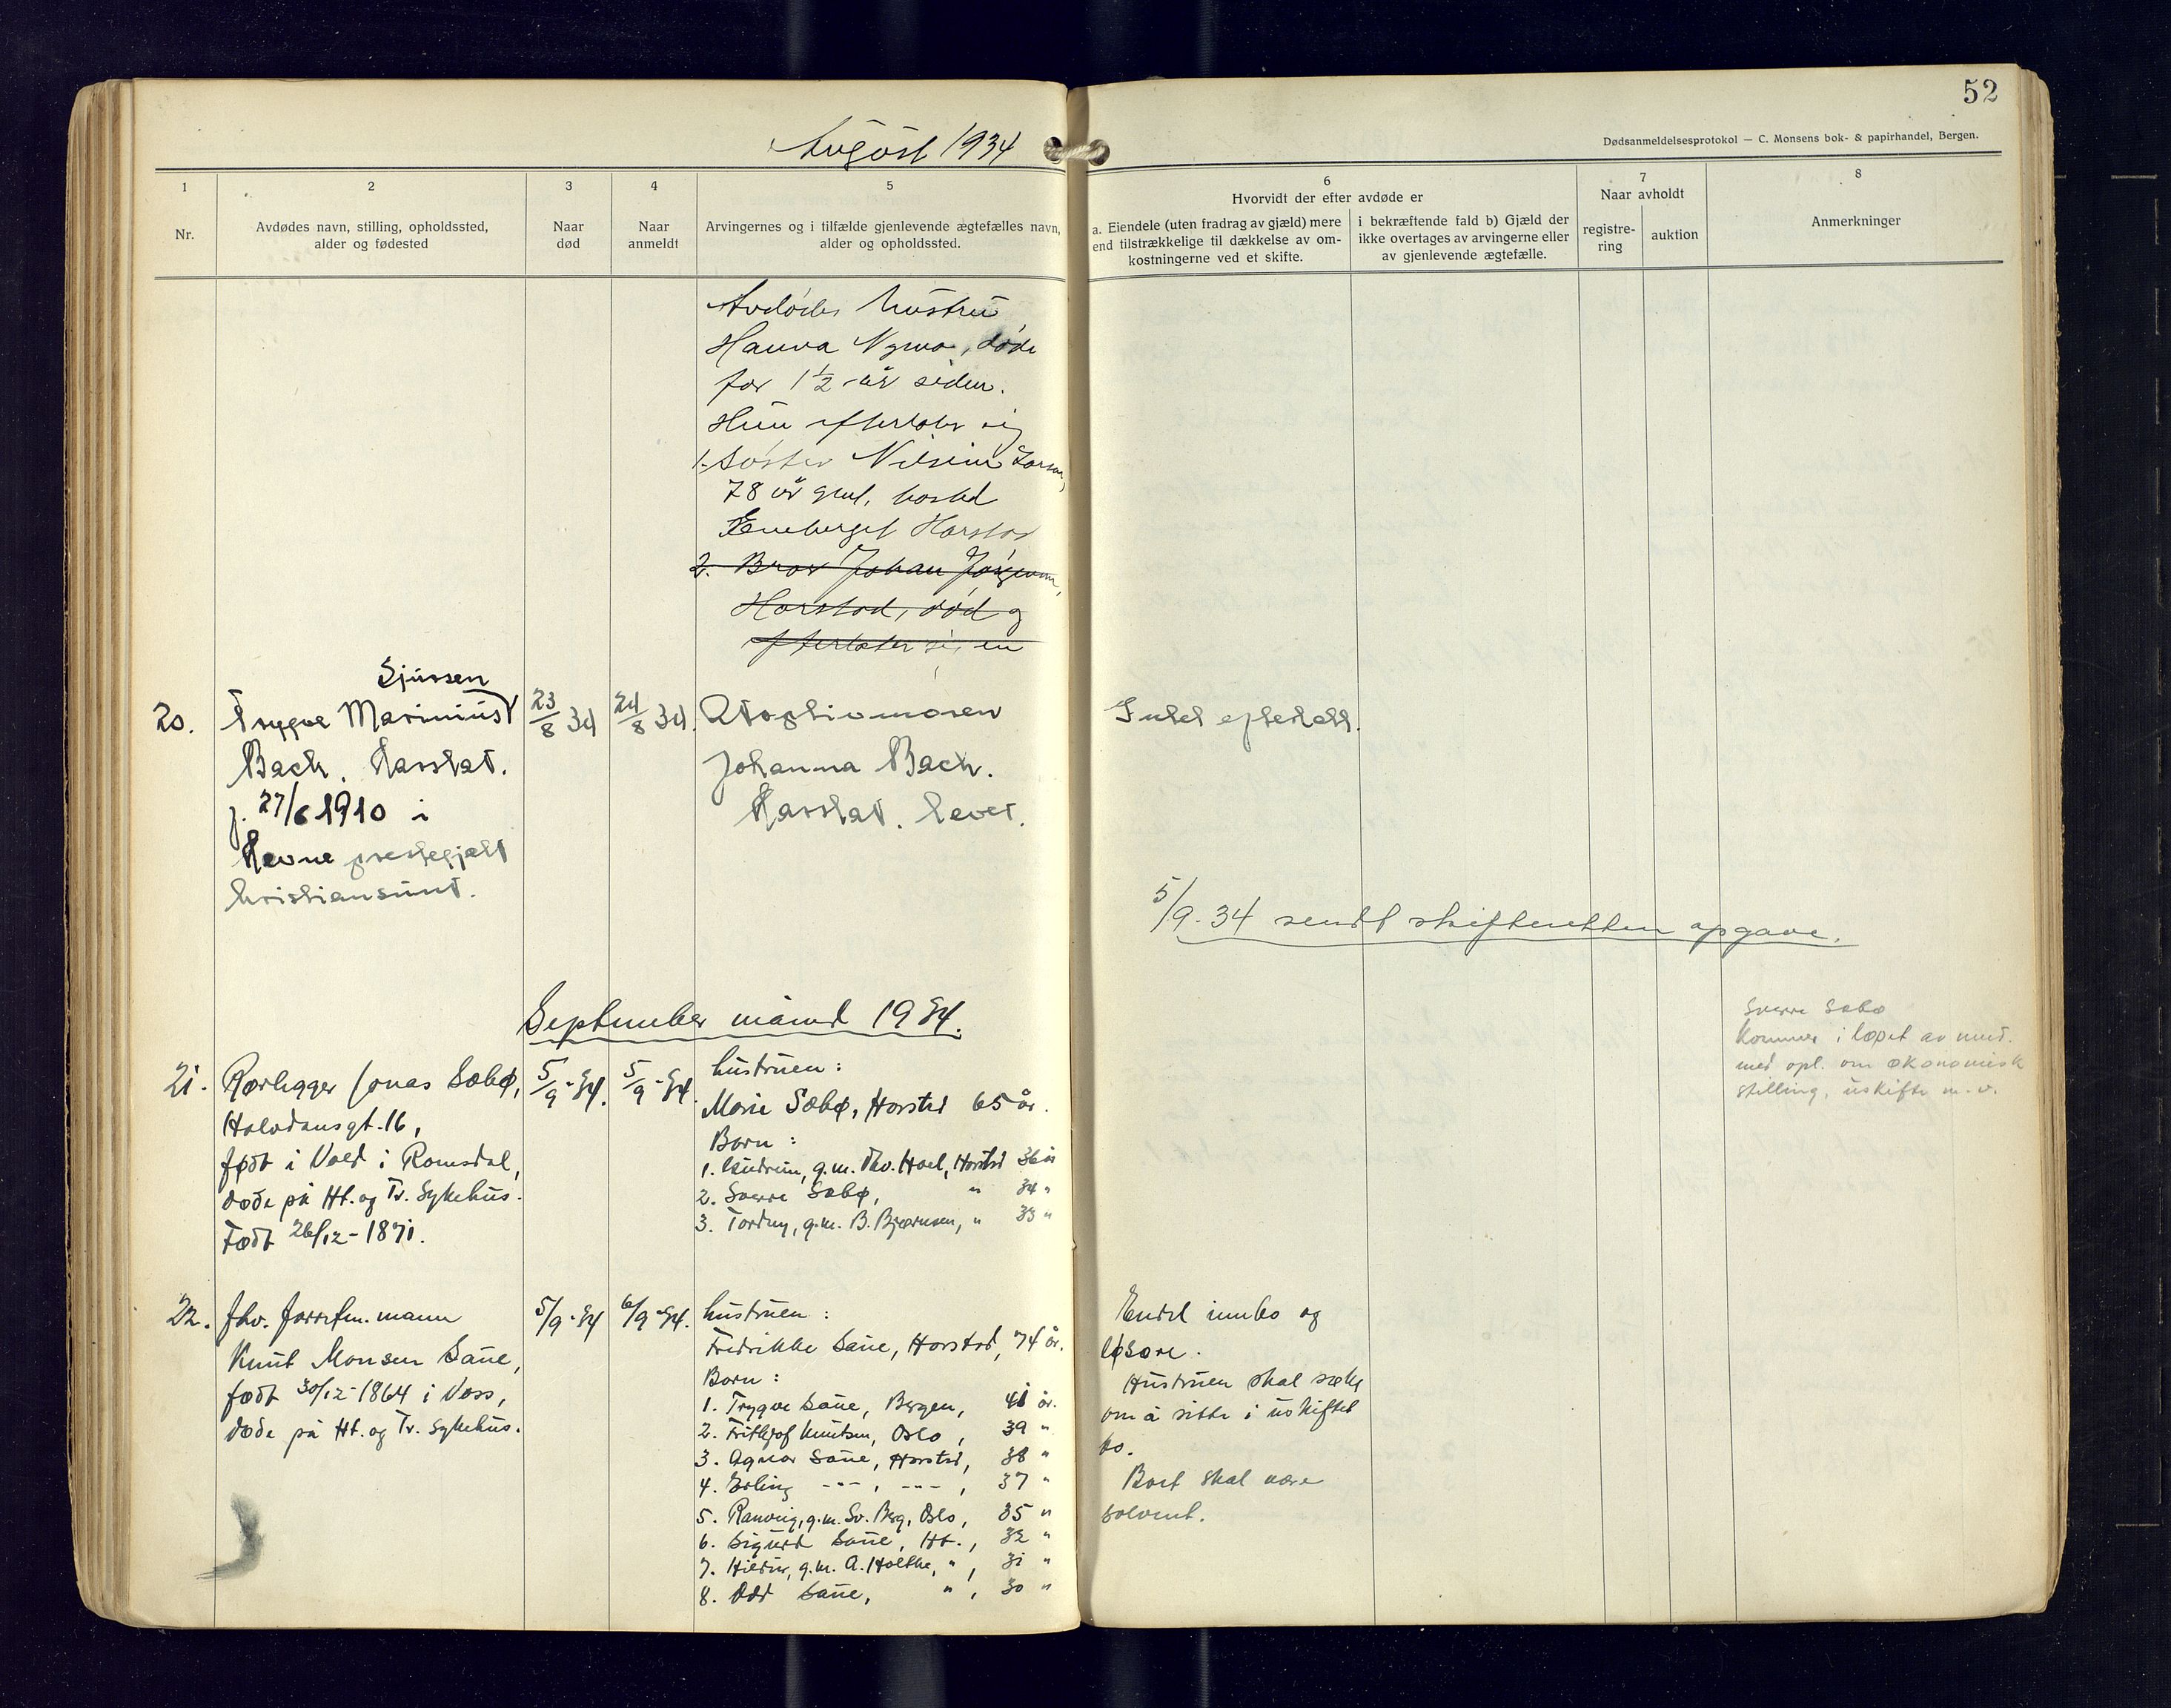 52
August 1934
Dødsanmeldelsesprotokol — C. Monsens bok- & papirhandel, Bergen.
1
Nr.
2
Avdødes navn, stilling, opholdssted,
alder og fødested
3
Naar
død
4
Naar
anmeldt
5
Arvingernes og i tilfælde gjenlevende ægtefælles navn,
alder og opholdssted.
6
Hvorvidt der efter avdøde er
a. Eiendele (uten fradrag av gjæld) mere
end tilstrækkelige til dækkelse av om-
kostningerne ved et skifte.
i bekræftende fald b) Gjæld der
ikke overtages av arvingerne eller
av gjenlevende ægtefælle.
7
Naar avholdt
registre-
ring
auktion
8
Anmerkninger
Avdødes hustru
Hanna, døde
for 1½ år siden.
Hun efterlater sig
1. Søster
78 år gml, bosted
Harstad
2. Bror Johan
Harstad, død og
efterlater sig en
20.
Sjursen
Trygve Marinius
Bach. Harstad.
f. 27/6 1910 i
Hevne prestegjeld
kristiansund.
23/8 34
24/8 34.
Adoptivmoren
Johanna Bach.
Harstad. lever.
Intet efterlatt.
5/9-34 sendt skifteretten opgave.
September måned 1934.
21.
Rørlegger Jonas Sæbø,
Halvdansgt. 16,
født i Vold i Romsdal,
døde på Ht. og Tr. Sykehus.
Født 26/12-1871.
5/9-34.
5/9-34.
hustruen:
Marie Sæbø, Harstad 65 år.
Barn:
1. Gudrun, g.m. Thv. Hoel, Harstad 36 år
2. Sverre Sæbø, " 34 "
3. Tordny, g.m. B. Bjørnsen, " 33 "
Sverre Sæbø
kommer i løpet av mnd.
med opl. om økonomisk
stilling, uskifte m.v.
22.
fhv. forretn. mann
Knut Monsen Saue,
født 30/12-1864 i Voss,
døde på Ht. og Tr. sykehus.
5/9-34
6/9-34.
hustruen:
Fredrikke Saue, Harstad, 74 år.
Barn:
1. Trygve Saue, Bergen, 41 år.
2. Frithjof Knutsen, Oslo, 39 "
3. Agnar Saue, Harstad, 38 "
4. Erling --- , --- , 37 "
5. Ranveig, g.m. Sv. Berg, Oslo, 35 "
6. Sigurd Saue, Ht., 32 "
7. Hildur, g.m. A. Holthe, " , 31 "
8. Odd Saue, " , 30 "
Endel innbo og
løsøre.
Hustruen skal søke
om å sitte i uskiftet
bo.
Boet skal være
solvent.